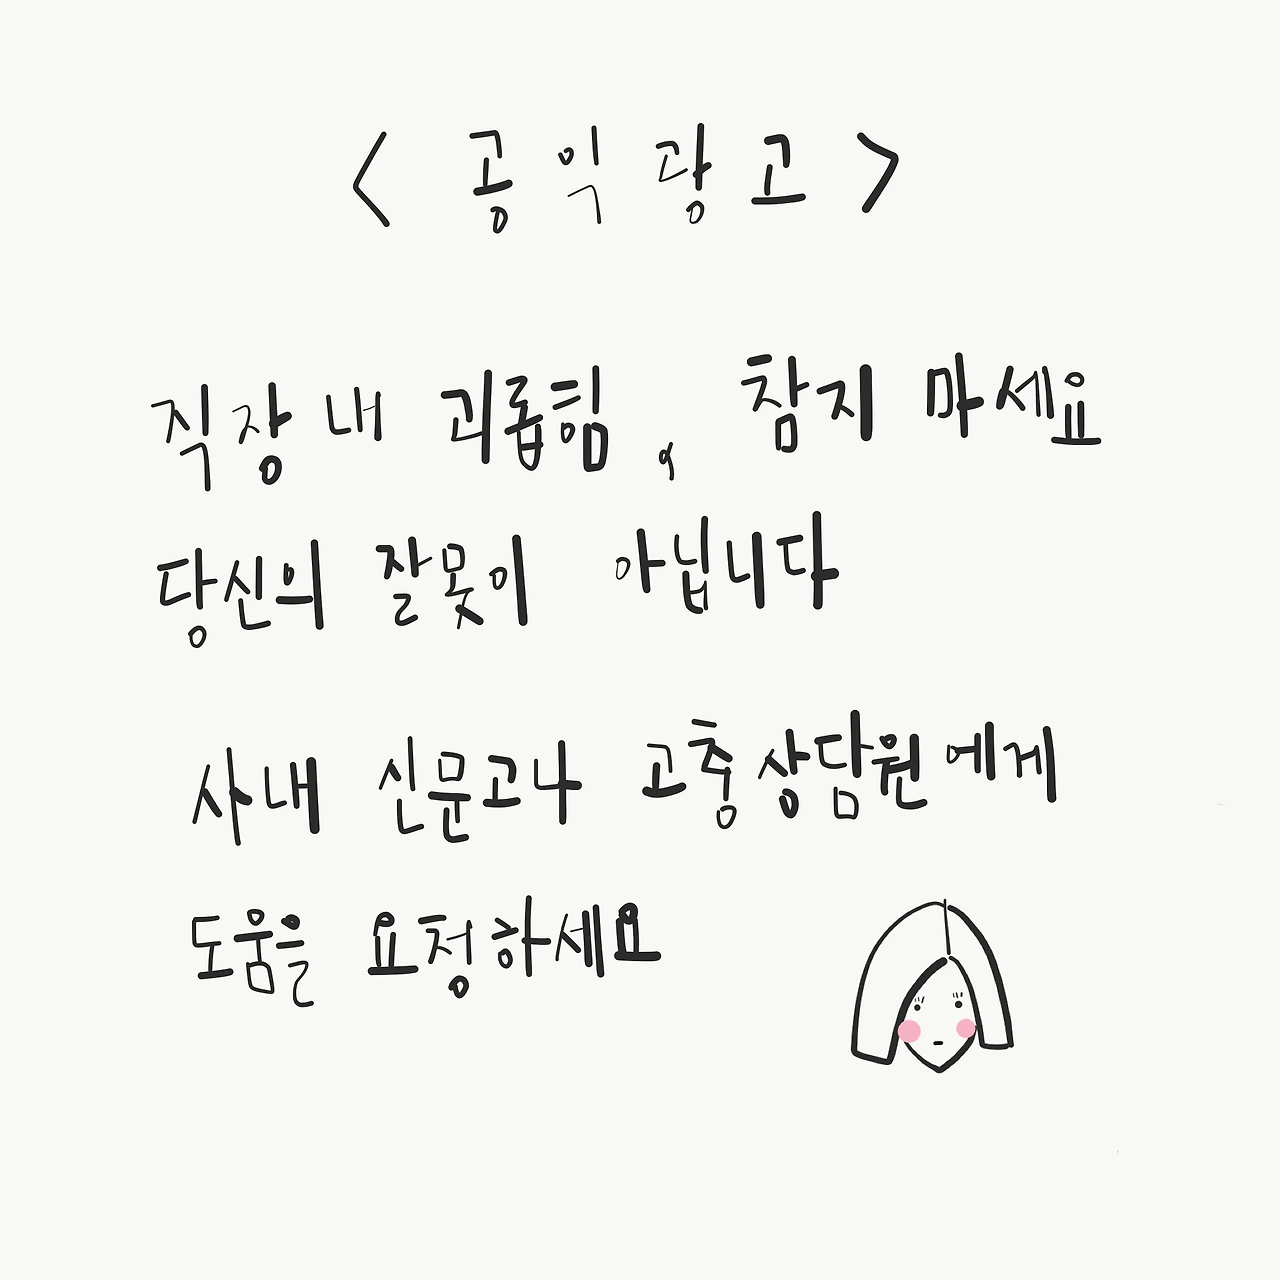 < 공익광고 >
직장 내 괴롭힘, 참지 마세요
당신의 잘못이 아닙니다
사내 신문고나 고충상담원에게
도움을 요청하세요